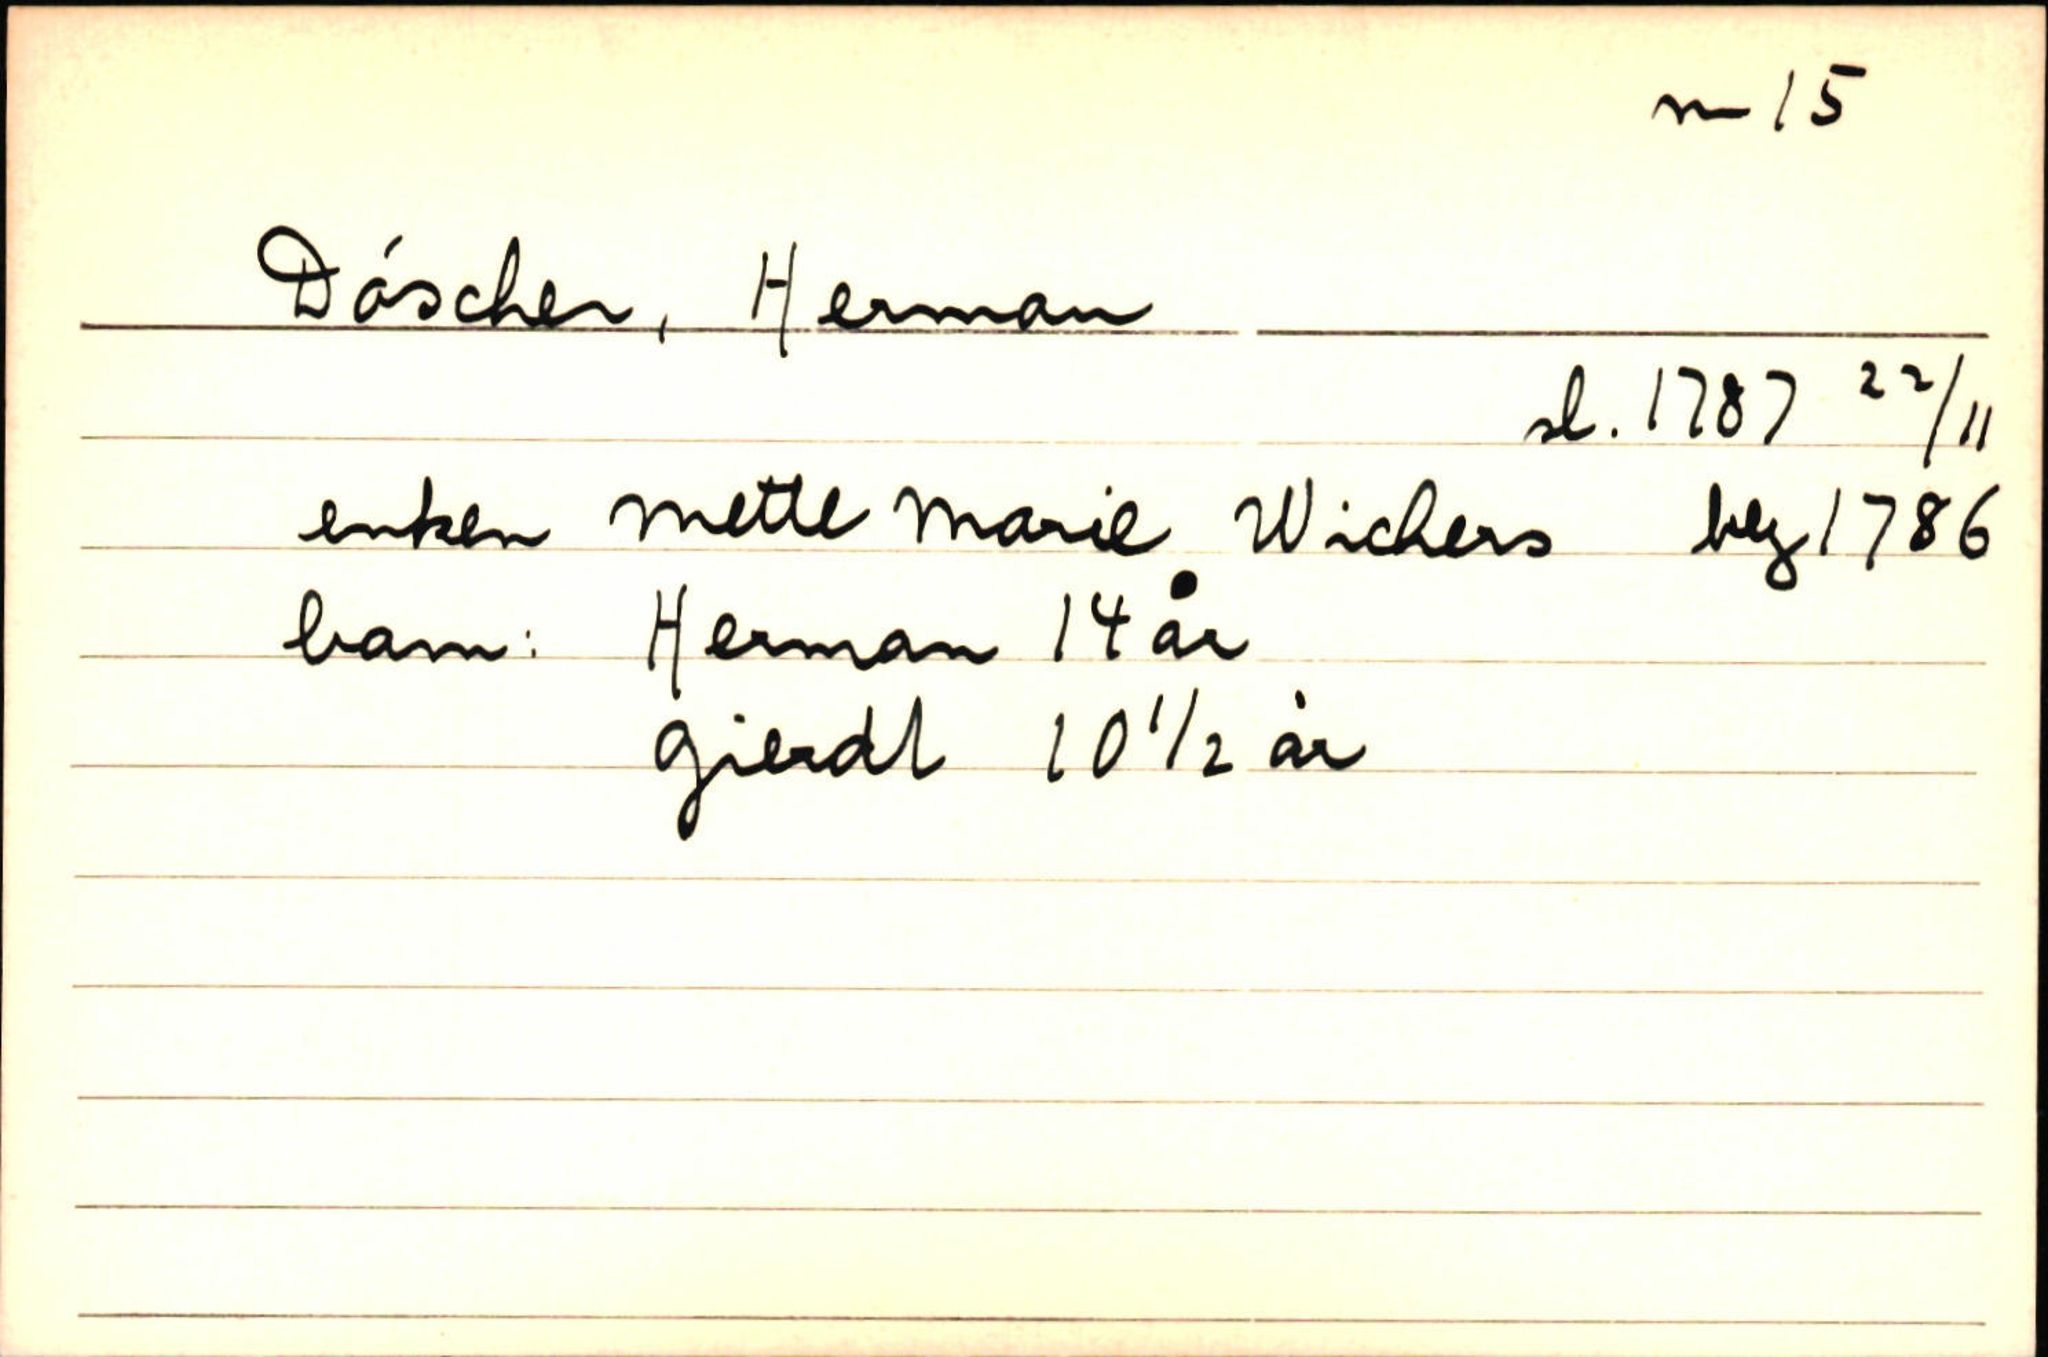 m 15
Döscher, Herman
sl. 1787 22/11
enken Mette Marie Wichers beg 1786
barn: Herman 14 år
Gierdt 10 1/2 år